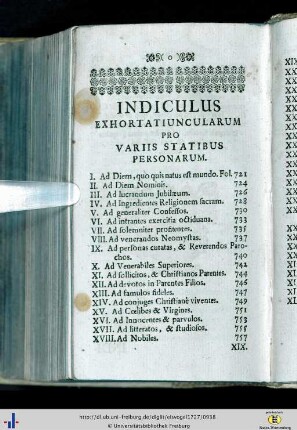 0
INDICULUS
EXHORTATIUNCULARUM
PRO
VARIIS STATIBUS
PERSONARUM.
I. Ad Diem, quo quis natus est mundo. Fol. 721
II. Ad Diem Nominis. 724
III. Ad lucrandum Jubilæum. 726
IV. Ad Ingredientes Religionem sacram. 728
V. Ad generaliter Confessos. 730
VI. Ad intrantes exercitia octiduana. 733
VII. Ad solemniter profitentes. 735
VIII. Ad venerandos Neomystas. 737
IX. Ad personas curatas, & Reverendos Paro-
chos. 740
X. Ad Venerabiles Superiores. 742
XI. Ad sollicitos, & Christianos Parentes. 744
XII. Ad devotos in Parentes Filios. 746
XIII. Ad famulos fideles. 747
XIV. Ad conjuges Christianè viventes. 749
XV. Ad Cœlibes & Virgines. 751
XVI. Ad Innocentes & parvulos. 753
XVII. Ad litteratos, & studiosos. 755
XVIII. Ad Nobiles. 757
XIX.
http://dl.ub.uni-freiburg.de/diglit/
© Universitätsbibliothek Freiburg